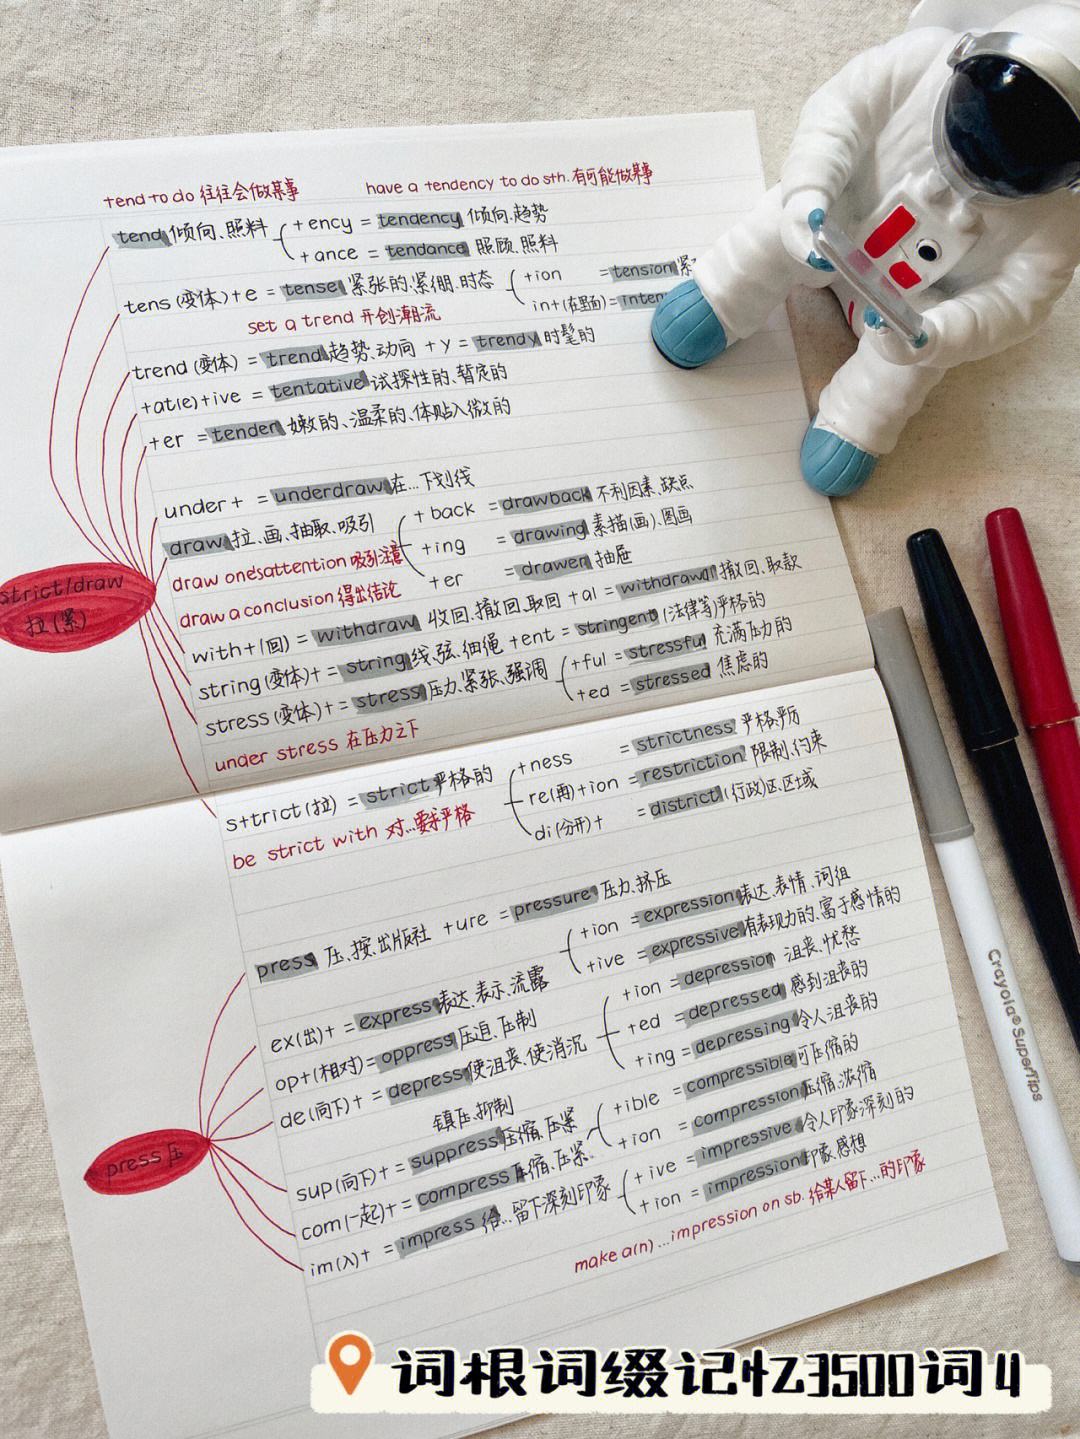 tend to do 往往会做某事
have a tendency to do sth. 有可能做某事
tend 倾向、照料
+ency = tendency 倾向、趋势
+ance = tendance 照顾、照料
tens (变体)+e = tense 紧张的、紧绷、时态
+ion = tension 紧
in+(在里面)= inten
set a trend 开创潮流
trend (变体) = trend 趋势、动向 + y = trendy 时髦的
+at(e)+ive = tentative 试探性的、暂定的
+er = tender 嫩的、温柔的、体贴入微的
under+ = underdraw 在…下划线
draw 拉、画、抽取、吸引
+ back = drawback 不利因素、缺点
+ing = drawing 素描(画)、图画
+er = drawer 抽屉
draw one's attention 吸引注意
draw a conclusion 得出结论
strict/draw
拉(紧)
with+(回) = withdraw 收回、撤回、取回 + al = withdrawal 撤回、取款
string(变体)+ = string 线、弦、细绳 +ent = stringent (法律等)严格的
stress(变体)+ = stress 压力、紧张、强调
+ful = stressful 充满压力的
+ed = stressed 焦虑的
under stress 在压力之下
s+trict(拉) = strict 严格的
+ness = strictness 严格、严厉
re(再)+ion = restriction 限制、约束
di(分开)+ = district (行政)区、区域
be strict with 对…要求严格
press 压、按、出版社 +ure = pressure 压力、挤压
ex(出)+ = express 表达、表示、流露
+ion = expression 表达、表情、词组
+ive = expressive 有表现力的、富于感情的
op+(相对)= oppress 压迫、压制
de(向下)+ = depress 使沮丧、使消沉
+ion = depression 沮丧、忧愁
+ed = depressed 感到沮丧的
+ing = depressing 令人沮丧的
press 压
镇压、抑制
sup(向下)+ = suppress 压缩、压紧
com(一起)+ = compress 压缩、压紧
+ible = compressible 可压缩的
+ion = compression 压缩、浓缩
im(入)+ = impress 给…留下深刻印象
+ive = impressive 令人印象深刻的
+ion = impression 印象、感想
make a(n) …impression on sb. 给某人留下…的印象
Crayola® SuperTips
词根词缀记忆3500词4